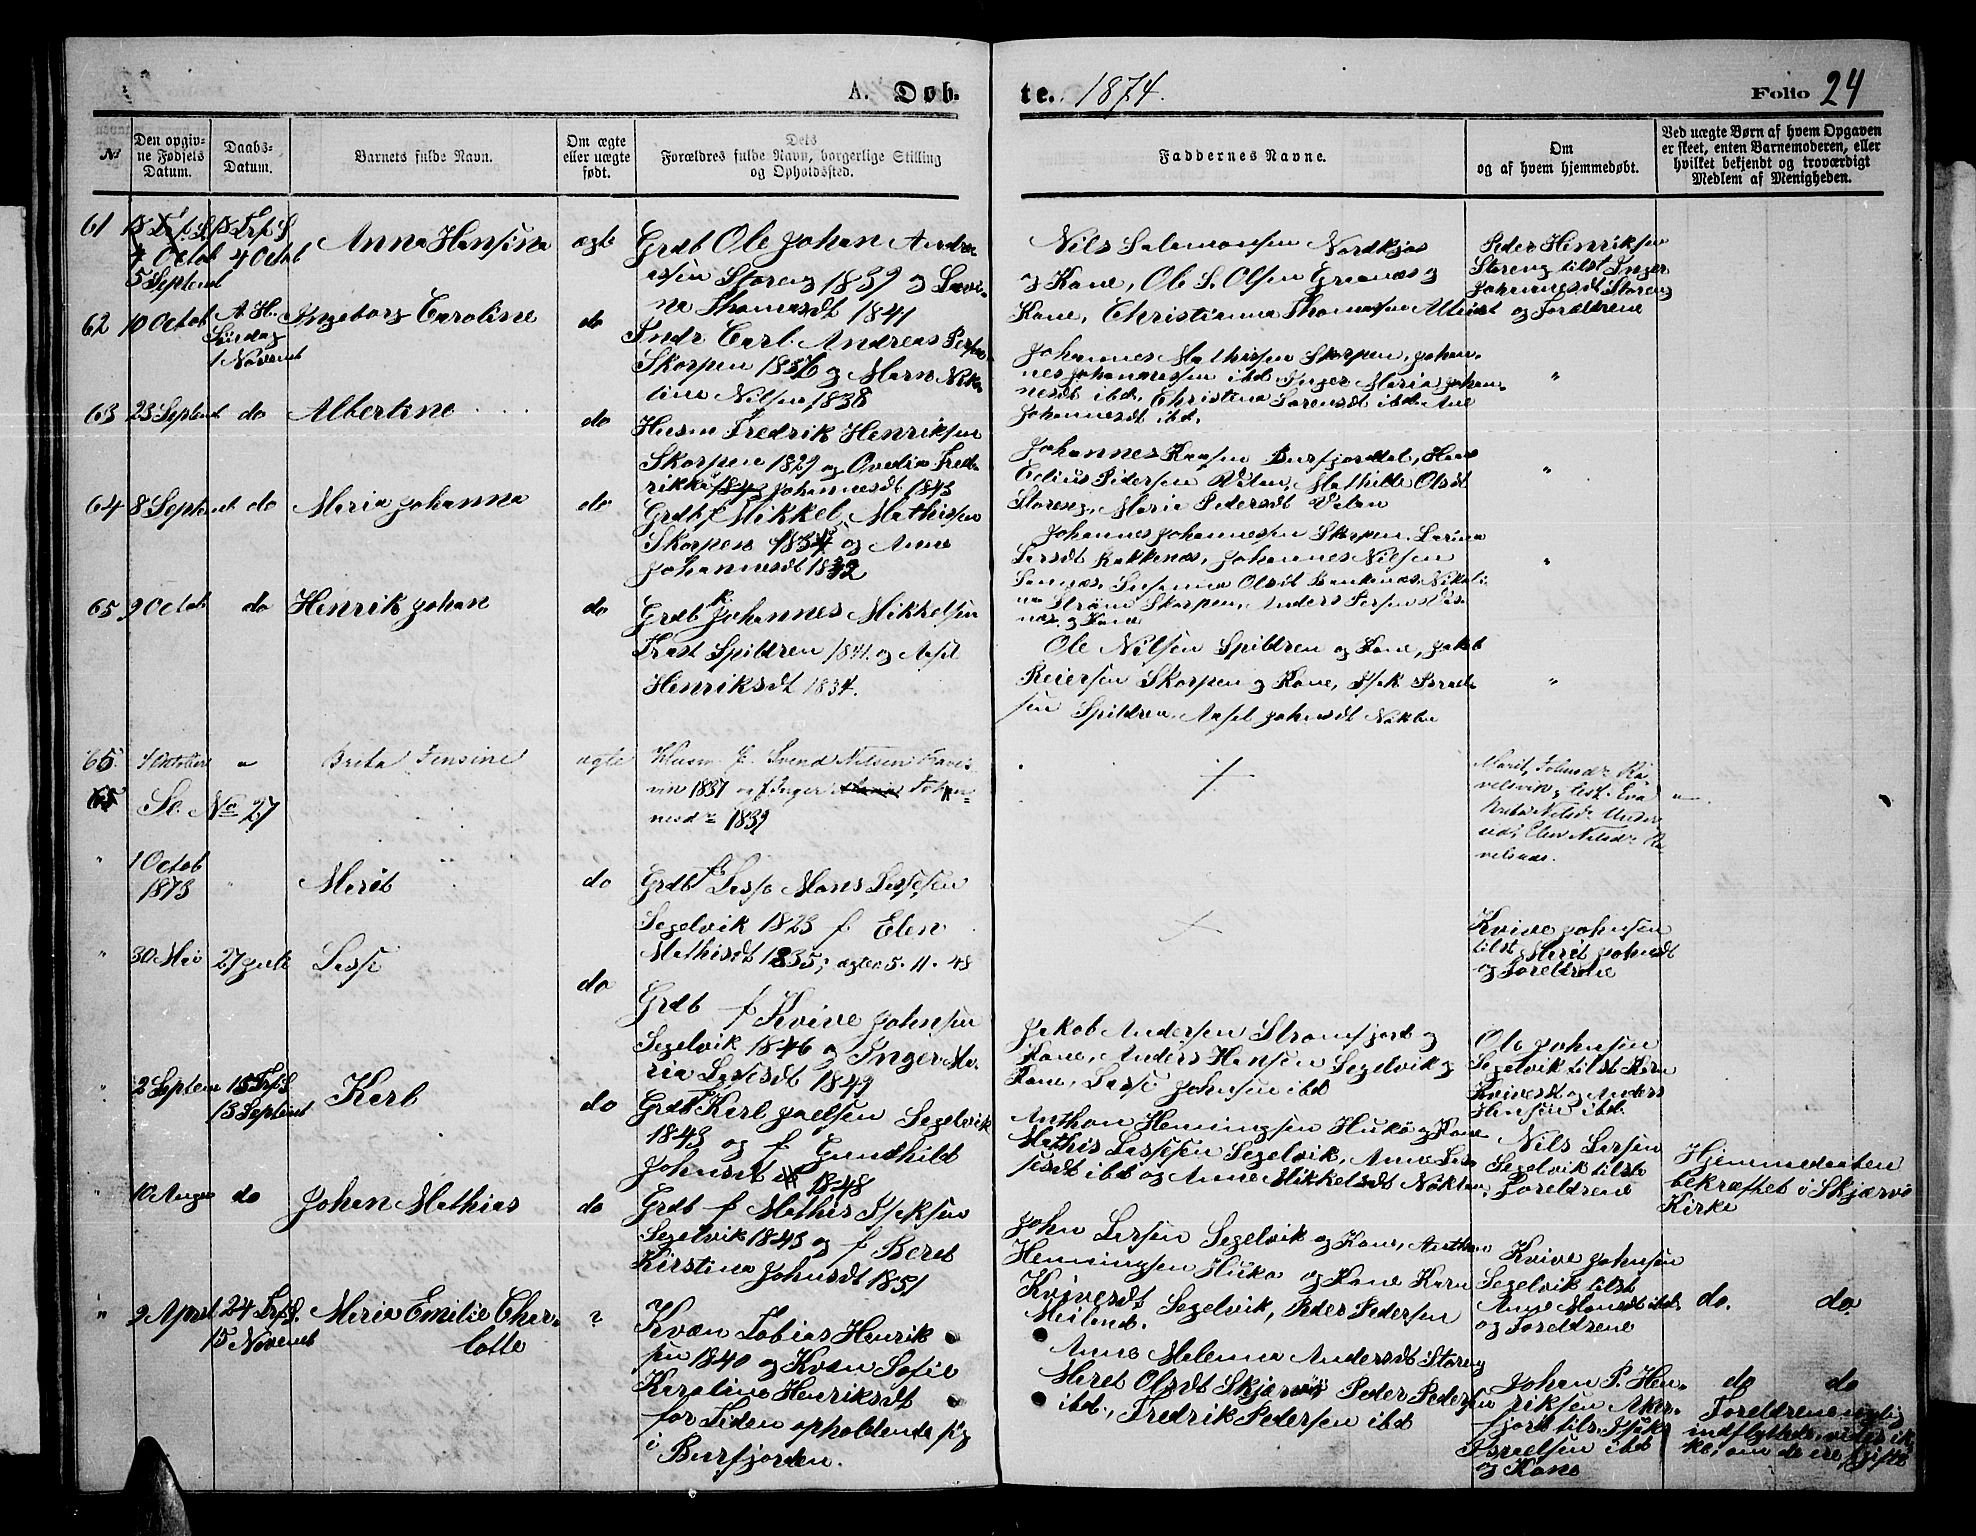 A. Døb.
te. 1874.
Folio 24
№
Den opgiv-
ne Fødsels
Datum.
Daabs-
Datum.
Barnets fulde Navn.
Om ægte
eller uægte
født.
Dets
Forældres fulde Navn, borgerlige Stilling
og Opholdssted.
Faddernes Navne.
Om
og af hvem hjemmedøbt.
Ved uægte Børn af hvem Opgaven
er skeet, enten Barnemoderen, eller
hvilket bekjendt og troværdigt
Medlem af Menigheden.
61
4 Octob
5 Septemb
4 Octob
Anna Hansina
ægte
Grdb Ole Johan Andre
assen Storeng 1839 og
Thomasdt 1841
Nils Salamonsen Nordkjos
og Kone, Ole S. Olsen Grønnæs og
Kone, Christianna Thomassen
Peder Henriksen
Storeng tilst Inger
Johannesdt Storeng
og Foreldrene
62
10 Octob
A. H.
Søndag
1 Novemb
Ingeborg Caroline
do
Indr Carl Andreas
Skorpen 1836 og Maren
Nilsen 1838
Johannes Mathissen Skorpen, Johan-
nes Johannessen ibd Inger Maria Johan-
nesdt ibd, Christina Sorensdt ibd. Ane
Johannesdt ibd.
"
63
23 Septemb
do
Albertine
do
Husm Fredrik Henriksen
Skorpen 1829 og Ovedia Fred-
rikka Johannesdt 1843
Johannes Hansen Burfjorddal, Hans
Edius Pedersen Valen, Mathilde Olsdt
Storeng, Maria Pedersdt Valan
"
64
8 Septemb
do
Maria Johanna
do
Grdb f Mikkel Mathissen
Skorpen 1837 og Anne
Johannesdt 1832
Johannes Johannessen Skorpen. Larina
Larsdt Bakkenæs, Johannes Nilsen
Sannæs, Susanna Olsdt Bankenæs, Nikoli-
na Strøm Skorpen, Anders Persen
og Kone
"
65
9 Octob
do
Henrik Johan
do
Grdb k Johannes Mikkelsen
Trast Spildren 1841 og Assel
Henriksdt 1834.
Ole Nilsen Spildren og Kone, Jakob
Reiersen Skorpen og Kone, Isak Israel-
sen Spildren, Assel Johnsdt Nøklan
"
65
4 October
"
Brita Jensine
ægte
Husm f. Svend Nilsen Ravels-
vin 1837 og f Inger Johan-
nesdr 1839
+
Marit Johnsdr Ra-
velsvik, test. Eva
Berta Nilsdr
Elen Nilsdr Ra-
velsnæs.
"
Se No 27
"
1 Octob
1873
"
Marit
do
Grdb f Lasse Mons Lassesen
Segelvik 1823 f Elen
Mathisdt 1835; ægtev 5. 11. 48
+
Kvive Johnsen
tilst Marit Johnsdt
og Foreldrene
"
30 Mai
27 Juli
Lasse
do
Grdb f Kvive Johnsen
Segelvik 1846 og Inger Ma-
ria Lassesdt 1849
Jakob Andersen Stromfjord og
Kone, Anders Hansen Segelvik og
Kone, Lasse Johnsen ibd
Ole Johnsen
Segelvik tilst Karn
Kvivesdt og Anders
Hansen ibd.
"
2 Septem
15 Trfs.
13 Septemb
Karl
do
Grdb f Karl Joelsen Segelvik
1843 og f Gundhild
Johnsdt 1848
Anthon Henningsen Hukø og Kone
Mathis Lassesen Segelvik, Anne Las-
sesdt ibd og Anne Mikkelsdt Nøklan
Nils Larsen
Segelvik tilst
Foreldrene
Hjemmedaaben
bekræftet i Skjærvø
Kirke
"
10 Augus
do
Johan Mathias
do
Grdb f Mathis Isaksen
Segelvik 1843 og f Beret
Kirstina Johnsdt 1851
John Larsen Segelvik og Kone, Anthon
Henningsen Huko og Kone Karn
Kvivesdt Segelvik, Peder Pedersen
Meiland.
Kvive Johnsen
Segelvik tilst
Anne Monsdt ibd
og Foreldrene
do.
do
"
9 April
24 Trfs.
15 Novemb
Maria Emilie Char-
lotte
?
Kvæn Tobias Henrik
sen 1840 og Kvæn Sofie
Karoline Henriksdt
for Tiden opholdende sig
i Burfjorden.
Anne Malenna Andersdt Storeng
Maret Olsdt Skjærvø Peder Pedersen
ibd., Fredrik Pedersen ibd
Johan P. Hen-
riksen Aker-
fjord tilst Isak
Israelsen ibd
og Kone
do
do
Foreldrene nylig
indflyttede, vides ik
ke, om de ere gifte